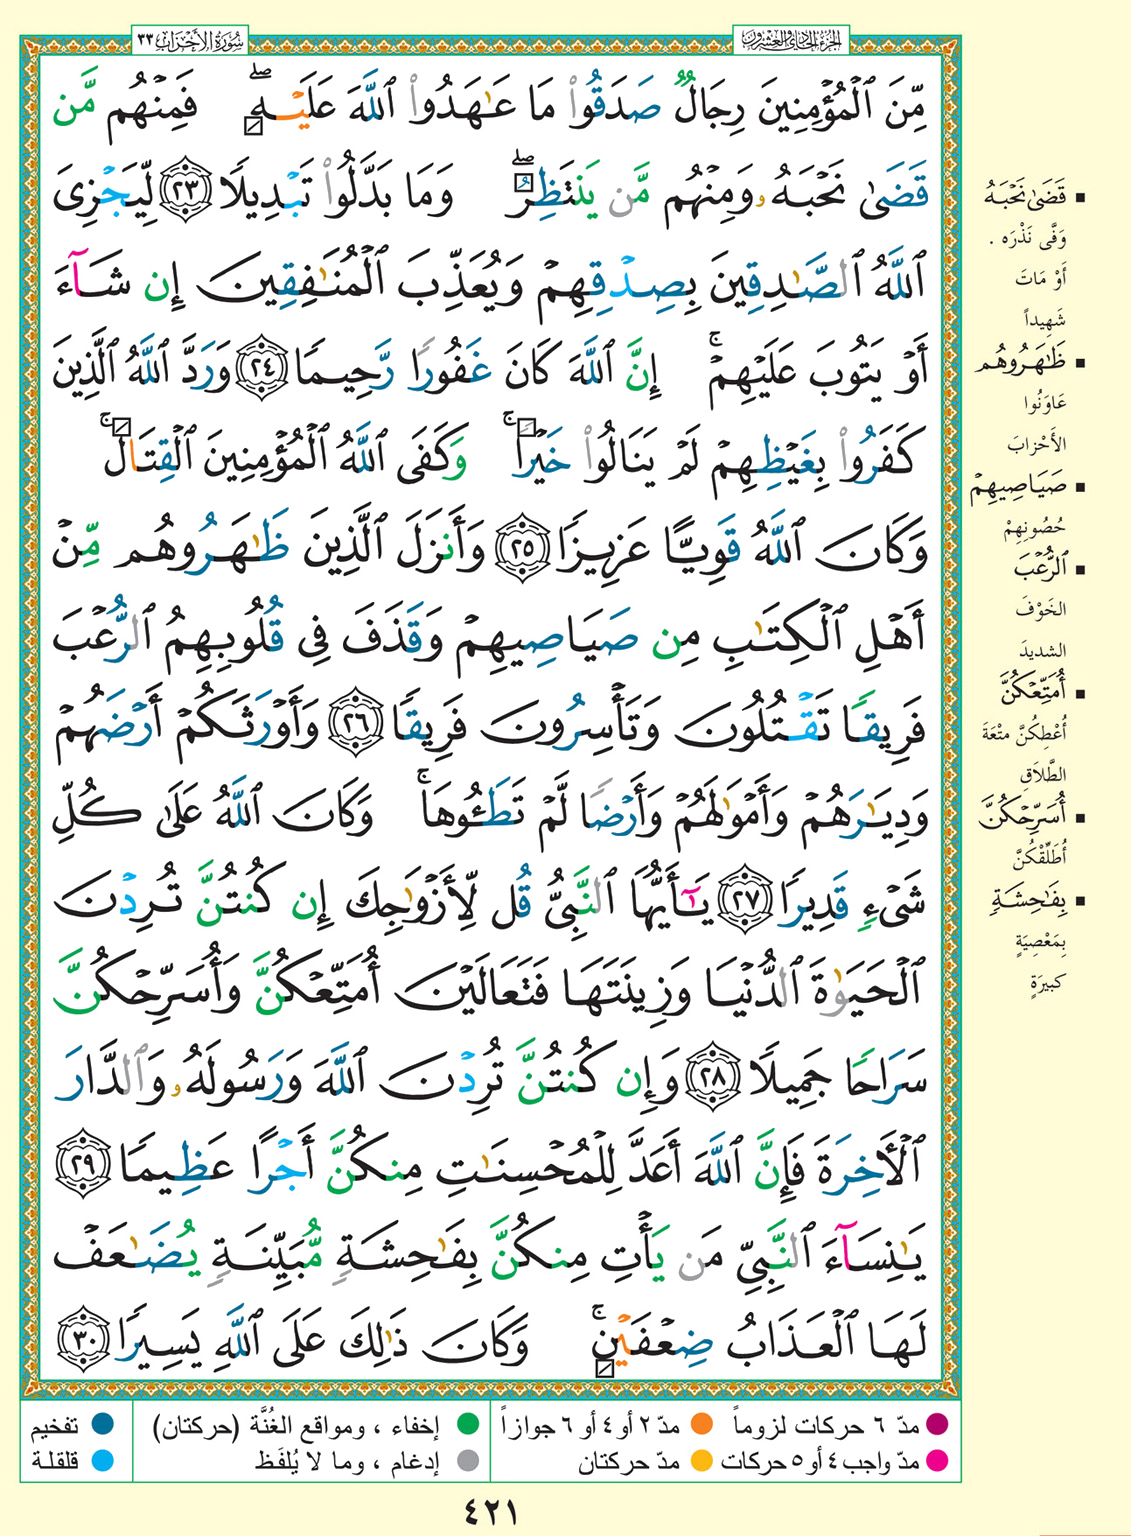 الجزء الحادي والعشرون
سُورَةُ الأَحْزَابِ ٣٣
مِّنَ ٱلْمُؤْمِنِينَ رِجَالٌ صَدَقُوا۟ مَا عَـٰهَدُوا۟ ٱللَّهَ عَلَيْهِ ۖ فَمِنْهُم مَّن
قَضَىٰ نَحْبَهُۥ وَمِنْهُم مَّن يَنتَظِرُ ۖ وَمَا بَدَّلُوا۟ تَبْدِيلًا ٢٣ لِّيَجْزِىَ
ٱللَّهُ ٱلصَّـٰدِقِينَ بِصِدْقِهِمْ وَيُعَذِّبَ ٱلْمُنَـٰفِقِينَ إِن شَآءَ
أَوْ يَتُوبَ عَلَيْهِمْ ۚ إِنَّ ٱللَّهَ كَانَ غَفُورًا رَّحِيمًا ٢٤ وَرَدَّ ٱللَّهُ ٱلَّذِينَ
كَفَرُوا۟ بِغَيْظِهِمْ لَمْ يَنَالُوا۟ خَيْرًا ۚ وَكَفَى ٱللَّهُ ٱلْمُؤْمِنِينَ ٱلْقِتَالَ ۚ
وَكَانَ ٱللَّهُ قَوِيًّا عَزِيزًا ٢٥ وَأَنزَلَ ٱلَّذِينَ ظَـٰهَرُوهُم مِّنْ
أَهْلِ ٱلْكِتَـٰبِ مِن صَيَاصِيهِمْ وَقَذَفَ فِى قُلُوبِهِمُ ٱلرُّعْبَ
فَرِيقًا تَقْتُلُونَ وَتَأْسِرُونَ فَرِيقًا ٢٦ وَأَوْرَثَكُمْ أَرْضَهُمْ
وَدِيَـٰرَهُمْ وَأَمْوَٰلَهُمْ وَأَرْضًا لَّمْ تَطَـُٔوهَا ۚ وَكَانَ ٱللَّهُ عَلَىٰ كُلِّ
شَىْءٍ قَدِيرًا ٢٧ يَـٰٓأَيُّهَا ٱلنَّبِىُّ قُل لِّأَزْوَٰجِكَ إِن كُنتُنَّ تُرِدْنَ
ٱلْحَيَوٰةَ ٱلدُّنْيَا وَزِينَتَهَا فَتَعَالَيْنَ أُمَتِّعْكُنَّ وَأُسَرِّحْكُنَّ
سَرَاحًا جَمِيلًا ٢٨ وَإِن كُنتُنَّ تُرِدْنَ ٱللَّهَ وَرَسُولَهُۥ وَٱلدَّارَ
ٱلْـَٔاخِرَةَ فَإِنَّ ٱللَّهَ أَعَدَّ لِلْمُحْسِنَـٰتِ مِنكُنَّ أَجْرًا عَظِيمًا ٢٩
يَـٰنِسَآءَ ٱلنَّبِىِّ مَن يَأْتِ مِنكُنَّ بِفَـٰحِشَةٍ مُّبَيِّنَةٍ يُضَـٰعَفْ
لَهَا ٱلْعَذَابُ ضِعْفَيْنِ ۚ وَكَانَ ذَٰلِكَ عَلَى ٱللَّهِ يَسِيرًا ٣٠
▪ قَضَىٰ نَحْبَهُ
وَفَّى نَذْرَه .
أَوْ مَاتَ
شَهِيداً
▪ ظَـٰهَرُوهُم
عَاوَنُوا
الأَحْزابَ
▪ صَيَاصِيهِمْ
حُصُونِهِمْ
▪ ٱلرُّعْبَ
الخَوْفَ
الشديدَ
▪ أُمَتِّعْكُنَّ
أُعْطِكُنَّ متْعَةَ
الطَّلاَقِ
▪ أُسَرِّحْكُنَّ
أُطَلِّقْكُنَّ
▪ بِفَـٰحِشَةٍ
بِمَعْصِيَةٍ
كبيرَةٍ
مدّ ٦ حركات لزوماً ● مدّ ٢ أو ٤ أو ٦ جوازاً ● إخفاء ، ومواقع الغُنَّة (حركتان) ● تفخيم
مدّ واجب ٤ أو ٥ حركات ● مدّ حركتان ● إدغام ، وما لا يُلفَظ ● قلقلة
٤٢١